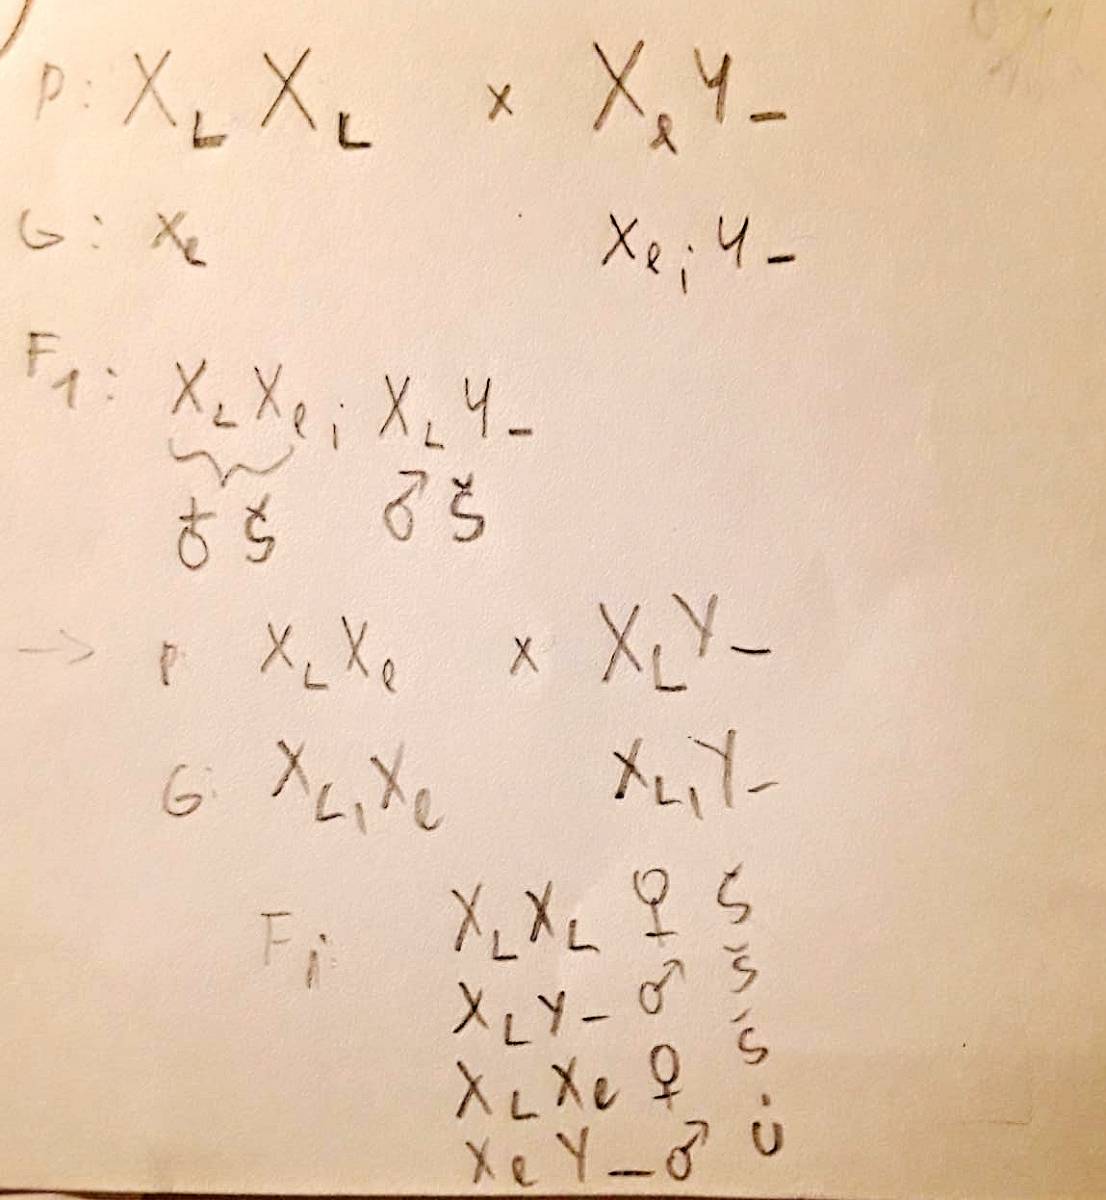 P: X_L X_L x X_l Y_-
G: X_l X_l; Y_-
F_1: X_L X_l; X_L Y_-
♀ Š ♂ Š
→ P X_L X_l x X_L Y_-
G: X_L, X_l X_L, Y_-
F_1: X_L X_L ♀ Š
X_L Y_- ♂ Š
X_L X_l ♀ Š
X_l Y_- ♂ Ů